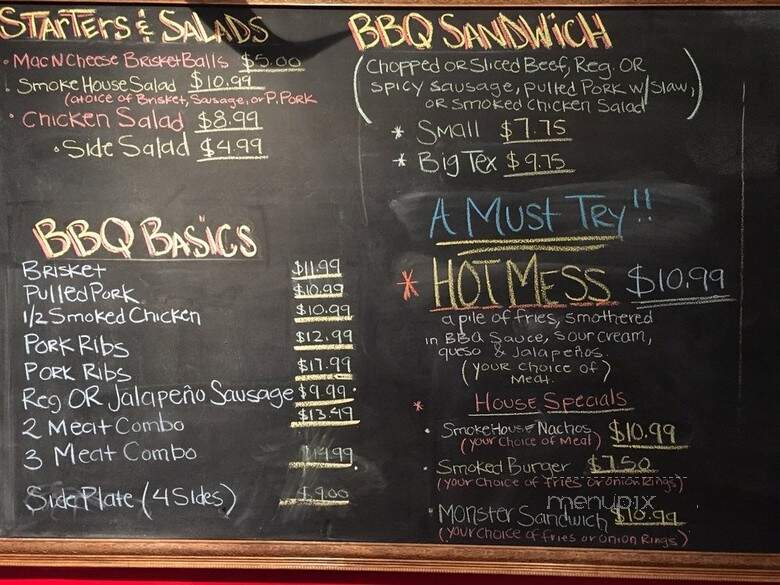 STARTERS & SALADS
• Mac N Cheese Brisket Balls $5.00
• Smoke House Salad $10.99
(Choice of Brisket, Sausage, or P. Pork
• Chicken Salad $8.99
• Side Salad $4.99
BBQ BASICS
Brisket $11.99
Pulled Pork $10.99
1/2 Smoked Chicken $10.99
Pork Ribs $12.99
Pork Ribs $17.99
Reg OR Jalapeño Sausage $9.99
2 Meat Combo $13.49
3 Meat Combo
Side Plate (4 Sides) $9.00
BBQ SANDWICH
(Chopped OR Sliced Beef, Reg. OR
Spicy Sausage, Pulled Pork w/ Slaw,
OR Smoked Chicken Salad)
* Small $7.75
* Big Tex $9.75
A Must Try!!
* HOT MESS $10.99
a pile of fries, smothered
in BBQ Sauce, Sour cream,
queso & Jalapeños.
(Your choice of)
Meat.
* House Specials
• SmokeHouse Nachos $10.99
(Your Choice of Meat)
• Smoked Burger $7.50
(Your Choice of fries or onion Rings)
menupix
• Monster Sandwich $10.99
(Your choice of fries or onion Rings)